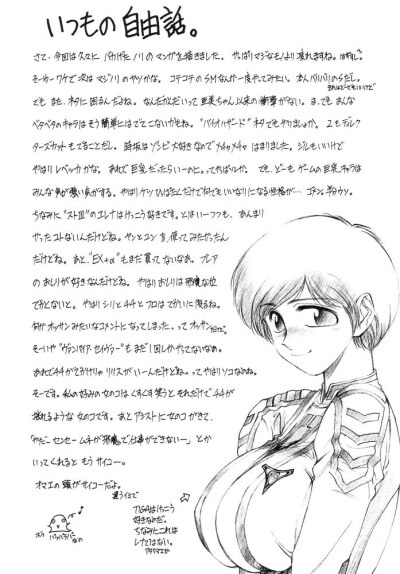 いつもの自由話。
さて、今回は久々にバカげたノリのマンガを描きました。やっぱりマジなモノより疲れますね。
モーゥーワケで次はマジノリのヤツかな。コテコテのSMなんか一度やってみたい。本人バリバリのSだし。
でも、また、ネタに困るんだよね。なんだかんだいって亜美ちゃん以来の衝撃がない。ま、でも、あんな
ベタベタのキャラはそう簡単にはでてこないかもね。"バイオハザード"ネタでもやりましょか。2もディレク
ターズカットもでることだし。時坂はゾンビ大好きなのでメチャメチャはまりました。ジルもいいけど
やはりレベッカかな。あれで巨乳だったらいーのにってやっぱソルか。でも、どーもゲームの巨乳キャラは
みんな気が強い気がする。やはりケツひっぱたくだけで何でもいいなりになる性格が…ゴメン、ギロウン。
ちなみに"ストIII"のエレナはけっこう好きです。とはいーつつも、あんまり
やったコトないんだけどね。ヤンとユンを使ってみたかったん
だけどね。あと、"EX+α"もまだ買ってないなあ。ブレア
のおしりが好きなんだけどね。やはりおしりは邪魔な位
でかくないと。やはりシリとチチとフロはでかいに限るね。
何かオッサンみたいなコメントになってしまった。ってオッサンだだ。
そーいや"ヴァンパイアセイヴァー"もまだ1回しかやってないなあ。
あれでチチがでかけりゃリリスがいーんだけどねっ。ってやっぱソコなのね。
そーです。私の好みの女のコはくすくす笑うとそれだけでチチが
揺れるような女のコです。あとアシストに女のコがきて、
「やだーセンセームネが邪魔で仕事ができないー」とか
いってくれるともうサイコー。
オマエの頭がサイコーだよ。
違うイミで
TIGAはけっこう
好きなんだな。
ちなみにこれは
レナではない。
アタリマエか